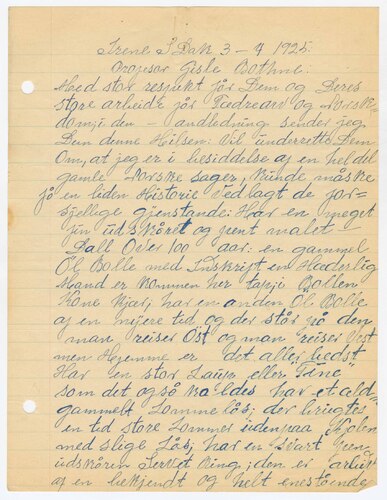 Irene S Dak 3 - 7 1925.
Profesor Gisle Bothne:
Med stor respekt för Dem og Deres
store arbeide för Fædrearv og Norske-
dom; i den - andledning sender jeg
Dem denne Hilsen: Vil underrette Dem
Om, at jeg er i besiddelse af en hel del
gamle Norske sager, kunde måske
få en liden Historie vedlagt de for-
sjellige gjenstande: Har en meget
fin udskåret og pent malet
Ball Over 100 aar: en gammel
Öl Bolle med Inskrift en Hæderlig
Mand er kommen her tapi Bollen
Kone Kjær; har en anden Öl Bolle
af en nyere tid og der står på den
man reiser Ost og man reiser Vest
men Hejemme er det aller bedst
Har en stor Laup eller "Tine"
som det også kaldes har et ald-
gammelt Lommelås; der brugtes
en tid store Lommer udenpaa Kjolen
med slige Lås; har en svart pen
udskåren Serviet Ring; den er arbeid
af en bekjendt og helt enestående